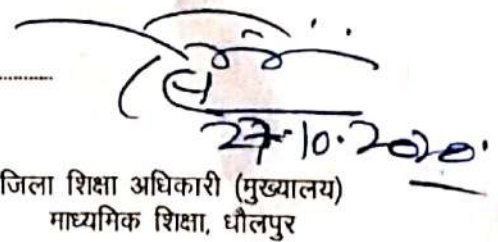 27.10.2020
जिला शिक्षा अधिकारी (मुख्यालय)
माध्यमिक शिक्षा, धौलपुर